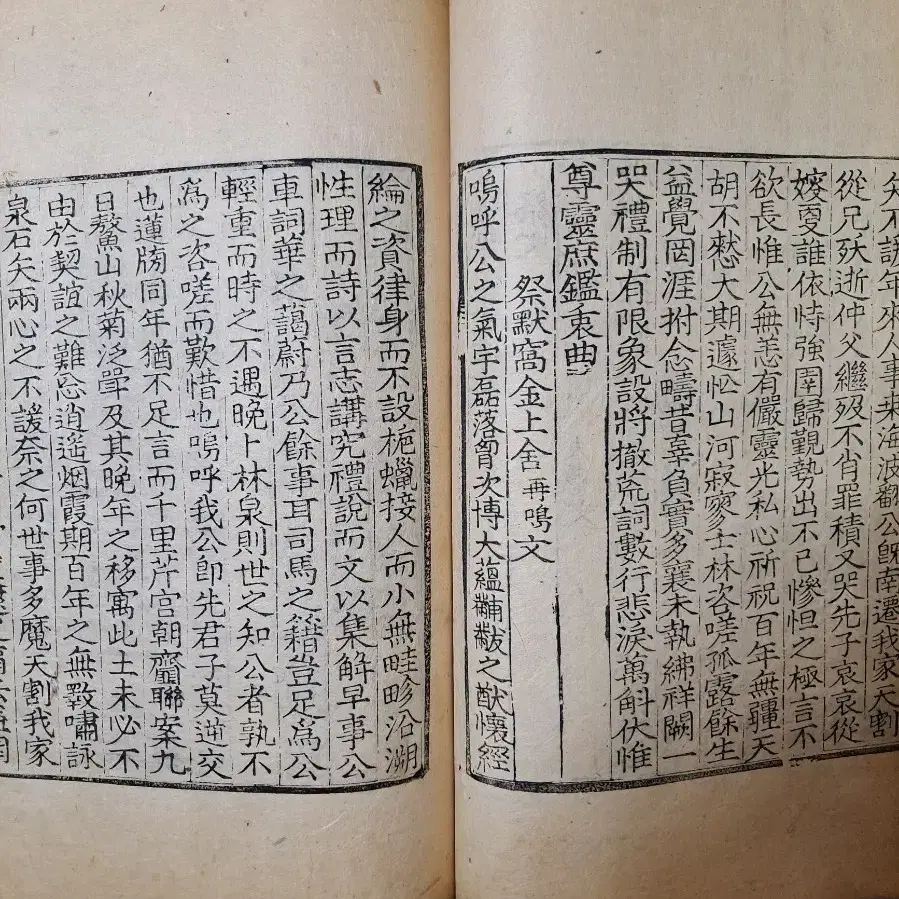 矢不諼年來人事桒海波翻公旣南遷我家天割
從兄夭逝仲父繼歿不肖罪積又哭先子哀哀從
嫂煢誰依恃強圉歸覲勢出不已慘怛之極言不
欲長惟公無恙有儼靈光私心祈祝百年無疆天
胡不憖大期遽忙山河寂寥士林咨嗟孤露餘生
益覺罔涯拊念疇昔辜負實多襄未執紼祥闕一
哭禮制有限象設將撤荒詞數行悲淚萬斛伏惟
尊靈庶鑑衷曲
祭默窩金上舍 再鳴 文
嗚呼公之氣宇磊落胷次博大蘊黼黻之猷懷經
綸之資律身而不設梔蠟接人而小無畦畛沿溯
性理而詩以言志講究禮說而文以集解早事公
車詞華之藹蔚乃公餘事耳司馬之籍豈足爲公
輕重而時之不遇晩卜林泉則世之知公者孰不
爲之咨嗟而歎惜也嗚呼我公卽先君子莫逆交
也蓮牓同年猶不足言而千里芹宮朝齏聯案九
日鰲山秋菊泛斝及其晩年之移寓此土未必不
由於契誼之難忘逍遙烟霞期百年之無斁嘯詠
泉石矢兩心之不諼奈之何世事多魔天割我家